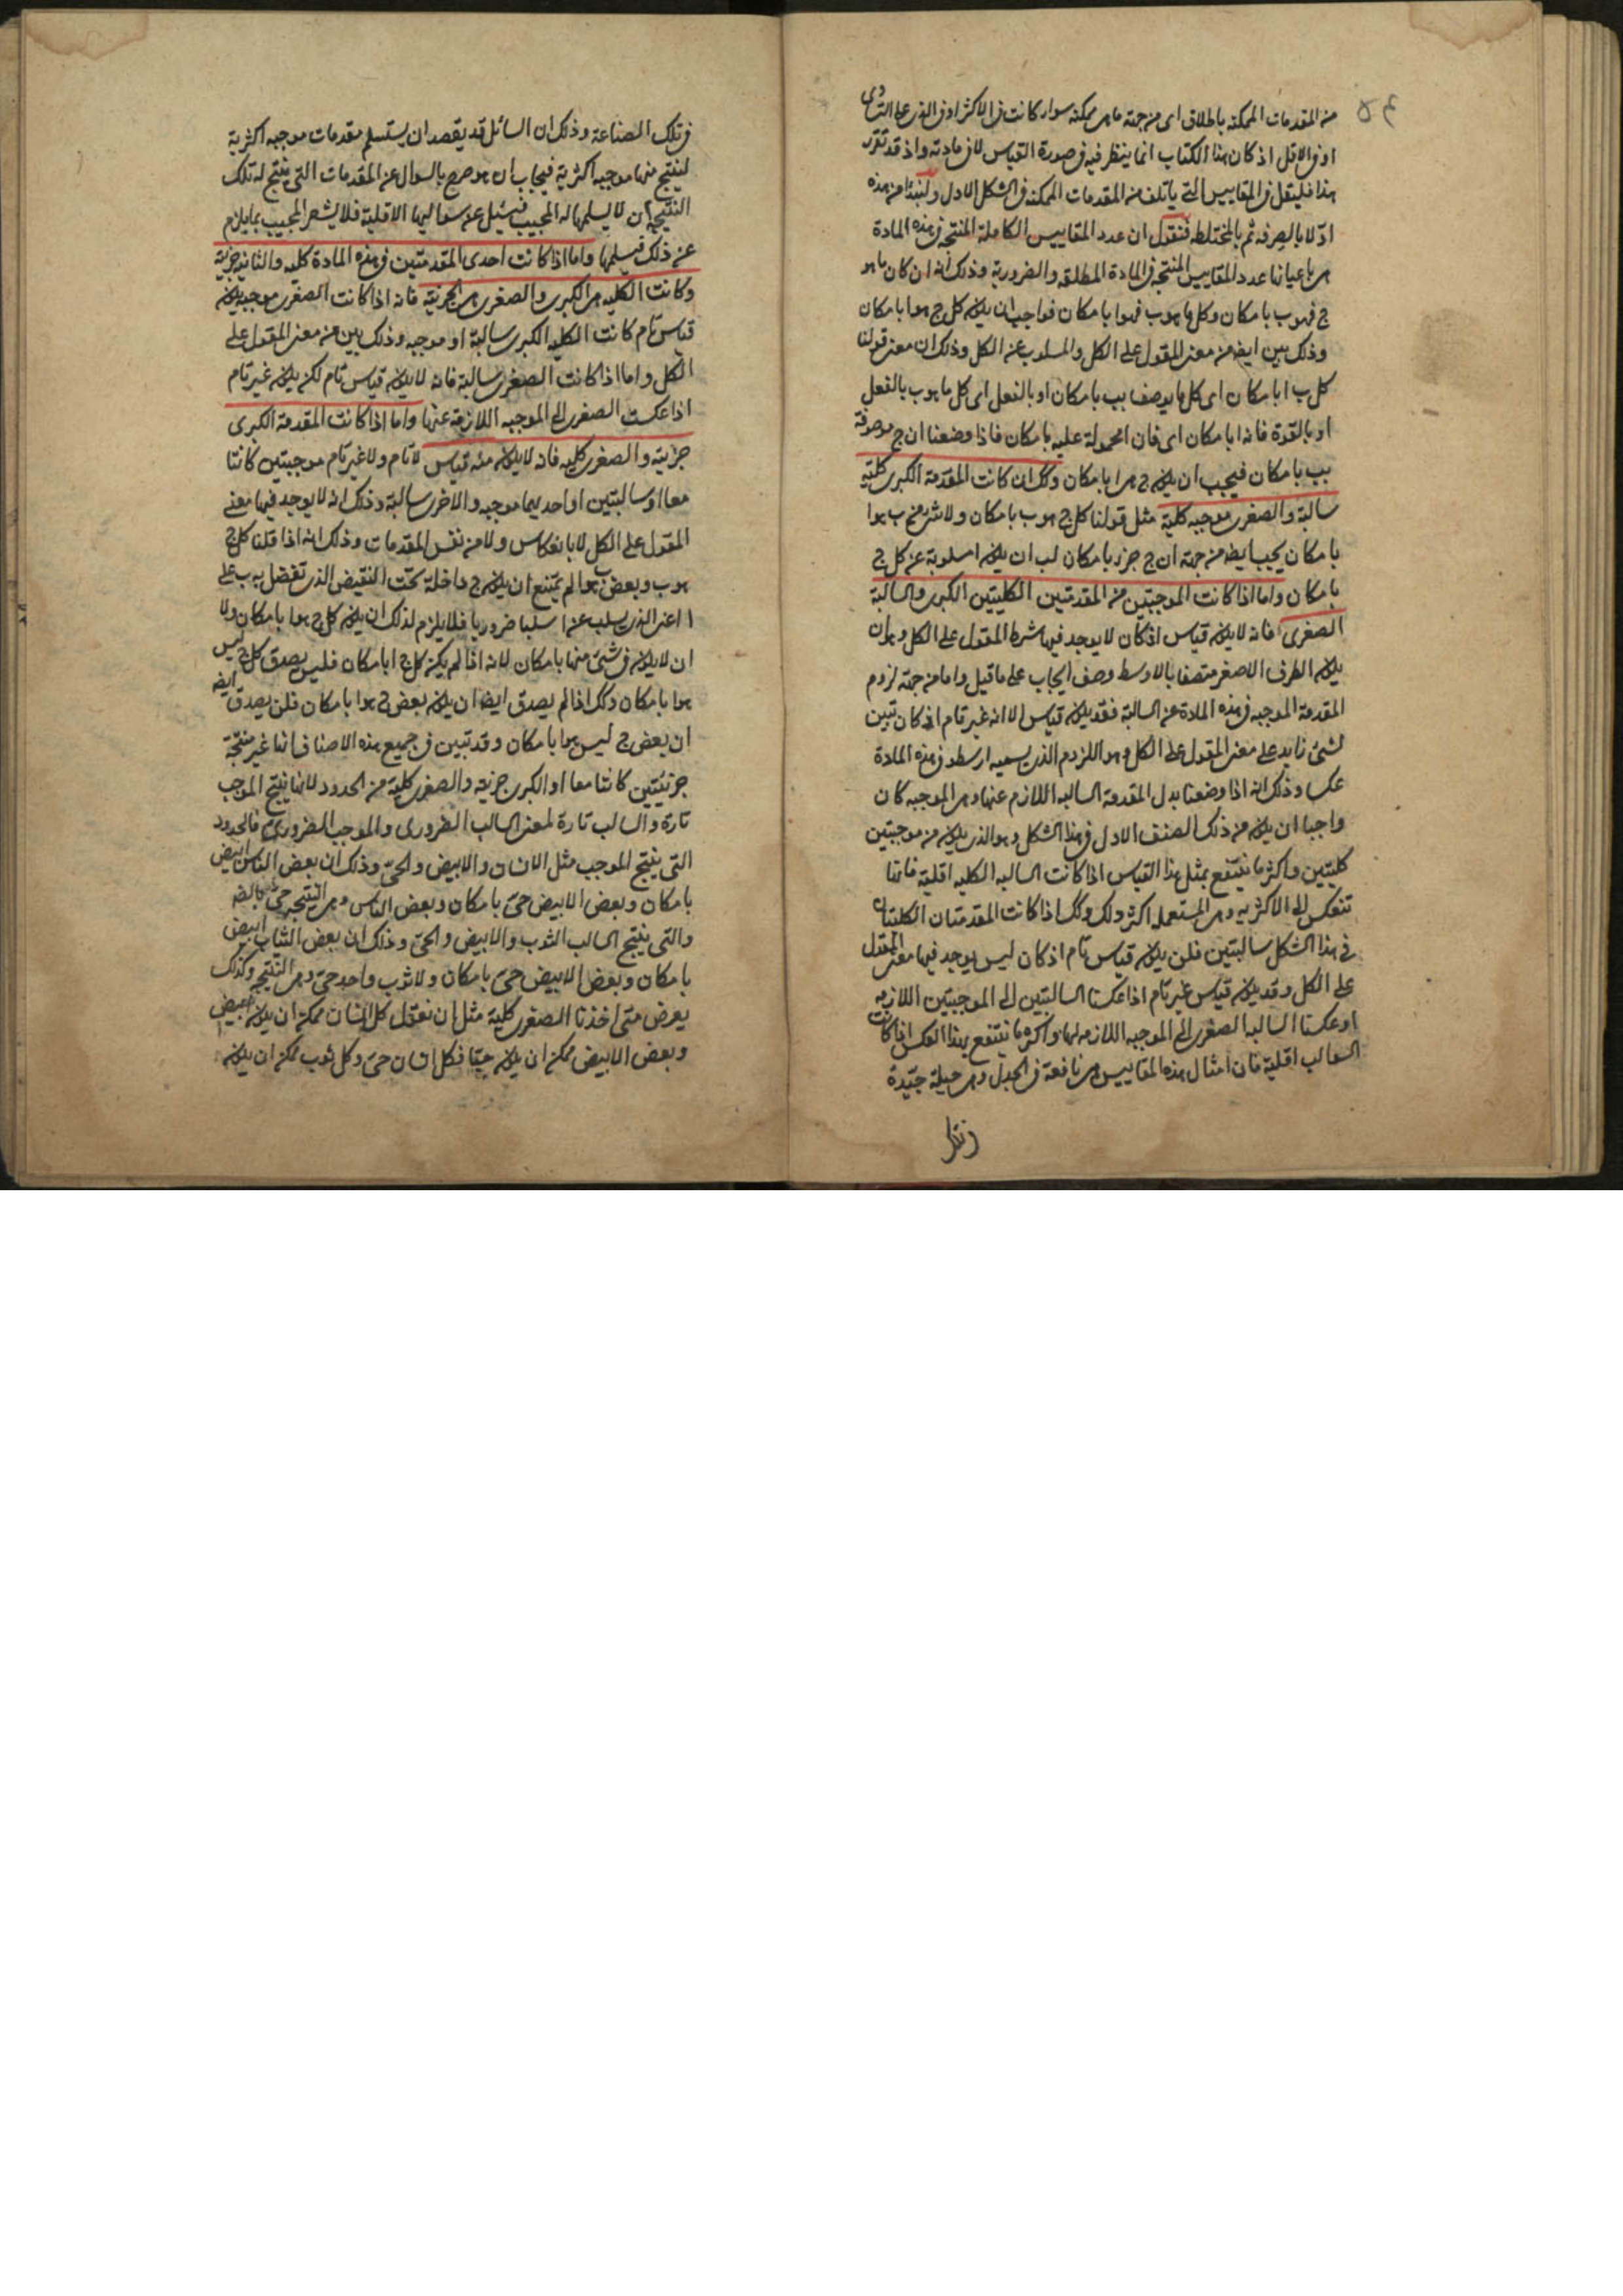 من المقدمات الممكنة باطلاق اى من جهة ما هى ممكنة سواء كانت فى الاكثر او فى الذى على التساوى
او فى الاقل اذ كان هذا الكتاب انما ينظر فيه فى صورة القياس لا فى مادته واذ قد تقرر
هذا فليقل فى المقاييس التى ياتلف من المقدمات الممكنة فى الشكل الاول ولنبدا من هذه
اوّلا بالصرفه ثم بالمختلطه فنقول ان عدد المقاييس الكاملة المنتجة فى هذه المادة
هى باعيانها عدد المقاييس المنتجه فى المادة المطلقه والضرورية وذلك انه ان كان ما هو
ج فهو ب بامكان وكل ما هو ب فهو ا بامكان فواجب ان يكون كل ج هو ا بامكان
وذلك بين ايضا من معنى المقول على الكل والمسلوب عن الكل وذلك ان معنى قولنا
كل ب ا بامكان اى كل ما يوصف بب بامكان او بالفعل اى كل ما هو ب بالفعل
او بالقوة فانه ا بامكان اى فان ا محمولة عليه بامكان فاذا وضعنا ان ج موصوفة
بب بامكان فيجب ان يكون ج هى ا بامكان وكك ان كانت المقدمة الكبرى كلية
سالبة والصغرى موجبه كلية مثل قولنا كل ج هو ب بامكان ولا شئ من ب هو ا
بامكان يجب ايضا من جهة ان ج جزء بامكان لب ان يكون ا مسلوبة عن كل ج
بامكان واما اذا كانت الموجبتين من المقدمتين الكليتين الكبرى والسالبة
الصغرى فانه لا يكون قياس اذ كان لا يوجد فيها شرط المقول على الكل وهو ان
يكون الطرف الاصغر متصفا بالاوسط وصف ايجاب على ما قيل واما من جهة لزوم
المقدمة الموجبه فى هذه المادة عن السالبة فقد يكون قياس الا انه غير تام اذ كان تبين
لشئ زايد على معنى المقول على الكل وهو اللزوم الذى يسميه ارسطو فى هذه المادة
عكسا وذلك انه اذا وضعنا بدل المقدمة السالبه اللازم عنها وهى الموجبه كان
واجبا ان يكون من ذلك الصنف الاول فى هذا الشكل وهو الذى يكون من موجبتين
كليتين واكثر ما ينتفع بمثل هذا القياس اذا كانت السالبه الكليه اقلية فانها
تنعكس الى الاكثريه وهى المستعمله اكثر ذلك وكك اذا كانت المقدمتان الكليتان
فى هذا الشكل سالبتين فلن يكون قياس تام اذ كان ليس يوجد فيها معنى المقول
على الكل وقد يكون قياس غير تام اذا عكسنا السالبتين الى الموجبتين اللازمه
او عكسنا السالبه الصغرى الى الموجبه اللازمه لها واكثر ما ينتفع بهذا العكس اذا كانت
السوالب اقلية فان امثال هذه المقاييس هى نافعة فى الجدل وهى حيلة جيّدة
فى تلك الصناعة وذلك ان السائل قد يقصد ان يستسلم مقدمات موجبه اكثرية
لينتج منها موجبه اكثرية فيجاب ان هو صرح بالسوال عن المقدمات التى ينتج له تلك
النتيجة ان لا يسلمها له المجيب فيسئل عن سوالبها الاقلية فلا يشعر المجيب بما يلزم
عن ذلك فيسلمها واما اذا كانت احدى المقدمتين فى هذه المادة كليه والثانيه جزية
وكانت الكليه هى الكبرى والصغرى هى الجزئية فانه اذا كانت الصغرى موجبه يكون
قياس تام كانت الكليه الكبرى سالبة او موجبه وذلك بين من معنى المقول على
الكل واما اذا كانت الصغرى سالبة فانه لا يكون قياس تام لكن يكون غير تام
اذا عكست الصغرى الى الموجبه اللازمة عنها واما اذا كانت المقدمة الكبرى
جزئية والصغرى كليه فانه لا يكون منه قياس لا تام ولا غير تام موجبتين كانتا
معا او سالبتين او احديهما موجبه والاخرى سالبة وذلك انه لا يوجد فيها معنى
المقول على الكل لا بانعكاس ولا من نفس المقدمات وذلك انه اذا قلنا كل ج
هو ب وبعض ب هو ا لم يمتنع ان يكون ج داخلة تحت النقيض الذى تفضل به ب على
ا اعنى الذى يسلب عن ا سلبا ضروريا فلا يلزم لذلك ان يكون كل ج هو ا بامكان ولا
ان لا يكون فى شئ منها بامكان لانه اذا لم يكن كل ج ا بامكان فليس يصدق كل ج ليس
هو ا بامكان وكك اذا لم يصدق ايضا ان يكون بعض ج هو ا بامكان فلن يصدق ايضا
ان بعض ج ليس هو ا بامكان وقد تبين فى جميع هذه الاصناف انها غير منتجة
جزئيتين كانتا معا او الكبرى جزئية والصغرى كلية من الحدود لانها ينتج الموجب
تارة والسالب تارة لمعنى السالب الضرورى والموجب الضرورى فالحدود
التى ينتج الموجب مثل الانسان والابيض والحىّ وذلك ان بعض الناس ابيض
بامكان وبعض الابيض حىّ بامكان وبعض الناس وهى النتيجه حىّ بالضرورة
والتى ينتج السالب الثوب والابيض والحىّ وذلك ان بعض الثياب ابيض
بامكان وبعض الابيض حىّ بامكان ولا ثوب واحد حىّ وهى النتيجه وكذلك
يعرض متى اخذنا الصغرى كلية مثل ان نقول كل انسان ممكن ان يكون ابيض
وبعض الابيض ممكن ان يكون حيّا فكل انسان حىّ وكل ثوب ممكن ان يكون